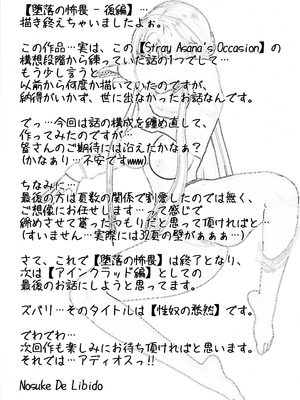 【堕落の怖畏 - 後編】…
描き終えちゃいましたよぉ。
この作品…実は、この【Stray Asana's Occasion】の
構想段階から練っていた話の1つでして…
もう少し言うと…
以前から何度か描いていたのですが、
納得がいかず、世に出なかったお話なんです。
でっ…今回は話の構成を纏め直して、
作ってみたのですが…
皆さんのご期待には沿えたかなぁ?
(かなぁり…不安ですwww)
ちなみに…
最後の方は頁数の関係で割愛したのでは無く、
ご想像にお任せします…って感じで
締めさせて貰ったつもりだと思って頂ければと…
(すいません…実際には32頁の壁がぁぁぁ…)
さて、これで【堕落の怖畏】は終了となり、
次は【アインクラッド編】としての
最後のお話にしようと思ってます。
ズバリ…そのタイトルは【性奴の愁然】です。
でわでわ…
次回作も楽しみにお待ち頂ければと…
それでは…アディオスっ!!
Nosuke De Libido